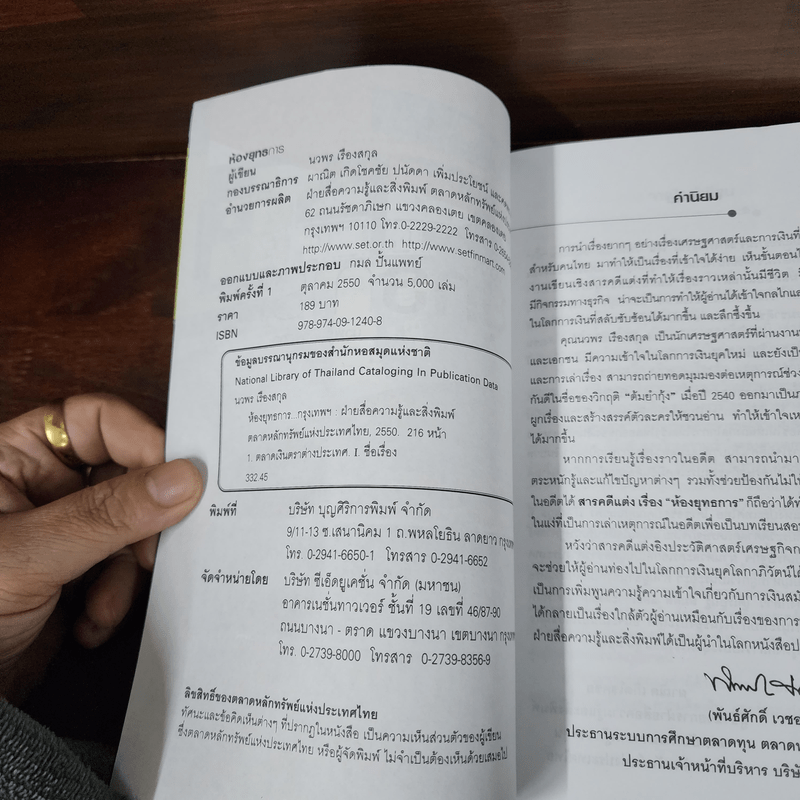 ห้องยุทธการ
ผู้เขียน นวพร เรืองสกุล
กองบรรณาธิการ ผาณิต เกิดโชคชัย ปนัดดา เพิ่มประโยชน์ และ
อำนวยการผลิต ฝ่ายสื่อความรู้และสิ่งพิมพ์ ตลาดหลักทรัพย์แห่ง
62 ถนนรัชดาภิเษก แขวงคลองเตย เขตคลองเตย
กรุงเทพฯ 10110 โทร.0-2229-2222 โทรสาร
http://www.set.or.th http://www.setfinmart.com
ออกแบบและภาพประกอบ กมล ปั้นแพทย์
พิมพ์ครั้งที่ 1 ตุลาคม 2550 จำนวน 5,000 เล่ม
ราคา 189 บาท
ISBN 978-974-09-1240-8
ข้อมูลบรรณานุกรมของสำนักหอสมุดแห่งชาติ
National Library of Thailand Cataloging In Publication Data
นวพร เรืองสกุล
ห้องยุทธการ...กรุงเทพฯ : ฝ่ายสื่อความรู้และสิ่งพิมพ์
ตลาดหลักทรัพย์แห่งประเทศไทย, 2550. 216 หน้า
1. ตลาดเงินตราต่างประเทศ. I. ชื่อเรื่อง
332.45
พิมพ์ที่ บริษัท บุญศิริการพิมพ์ จำกัด
9/11-13 ซ.เสนานิคม 1 ถ.พหลโยธิน ลาดยาว กรุงเทพฯ
โทร. 0-2941-6650-1 โทรสาร 0-2941-6652
จัดจำหน่ายโดย บริษัท ซีเอ็ดยูเคชั่น จำกัด (มหาชน)
อาคารเนชั่นทาวเวอร์ ชั้นที่ 19 เลขที่ 46/87-90
ถนนบางนา - ตราด แขวงบางนา เขตบางนา กรุงเทพฯ
โทร. 0-2739-8000 โทรสาร 0-2739-8356-9
ลิขสิทธิ์ของตลาดหลักทรัพย์แห่งประเทศไทย
ทัศนะและข้อคิดเห็นต่างๆ ที่ปรากฏในหนังสือ เป็นความเห็นส่วนตัวของผู้เขียน
ซึ่งตลาดหลักทรัพย์แห่งประเทศไทย หรือผู้จัดพิมพ์ ไม่จำเป็นต้องเห็นด้วยเสมอไป
คำนิยม
การนำเรื่องยากๆ อย่างเรื่องเศรษฐศาสตร์และการเงินที่
สำหรับคนไทย มาทำให้เป็นเรื่องที่เข้าใจได้ง่าย เห็นขั้นตอน
งานเขียนเชิงสารคดีแต่งที่ทำให้เรื่องราวเหล่านั้นมีชีวิต
มีกิจกรรมทางธุรกิจ น่าจะเป็นการทำให้ผู้อ่านได้เข้าใจกลไก
ในโลกการเงินที่สลับซับซ้อนได้มากขึ้น และลึกซึ้งขึ้น
คุณนวพร เรืองสกุล เป็นนักเศรษฐศาสตร์ที่ผ่านงาน
และเอกชน มีความเข้าใจในโลกการเงินยุคใหม่ และยังเป็น
และการเล่าเรื่อง สามารถถ่ายทอดมุมมองต่อเหตุการณ์ช่วง
กันดีในชื่อของวิกฤติ "ต้มยำกุ้ง" เมื่อปี 2540 ออกมาเป็น
ผูกเรื่องและสร้างสรรค์ตัวละครให้ชวนอ่าน ทำให้เข้าใจ
ได้มากขึ้น
หากการเรียนรู้เรื่องราวในอดีต สามารถนำมา
ตระหนักรู้และแก้ไขปัญหาต่างๆ รวมทั้งช่วยป้องกันไม่ให้
ในอดีตได้ สารคดีแต่ง เรื่อง "ห้องยุทธการ" ก็ถือว่าได้
ในแง่ที่เป็นการเล่าเหตุการณ์ในอดีตเพื่อเป็นบทเรียนสอน
หวังว่าสารคดีแต่งอิงประวัติศาสตร์เศรษฐกิจ
จะช่วยให้ผู้อ่านท่องไปในโลกการเงินยุคโลกาภิวัตน์ได้
เป็นการเพิ่มพูนความรู้ความเข้าใจเกี่ยวกับการเงินสมัย
ได้กลายเป็นเรื่องใกล้ตัวผู้อ่านเหมือนกับเรื่องของการ
ฝ่ายสื่อความรู้และสิ่งพิมพ์ได้เป็นผู้นำในโลกหนังสือ
(พันธ์ศักดิ์ เวช
ประธานระบบการศึกษาตลาดทุน ตลาด
ประธานเจ้าหน้าที่บริหาร บริษัท